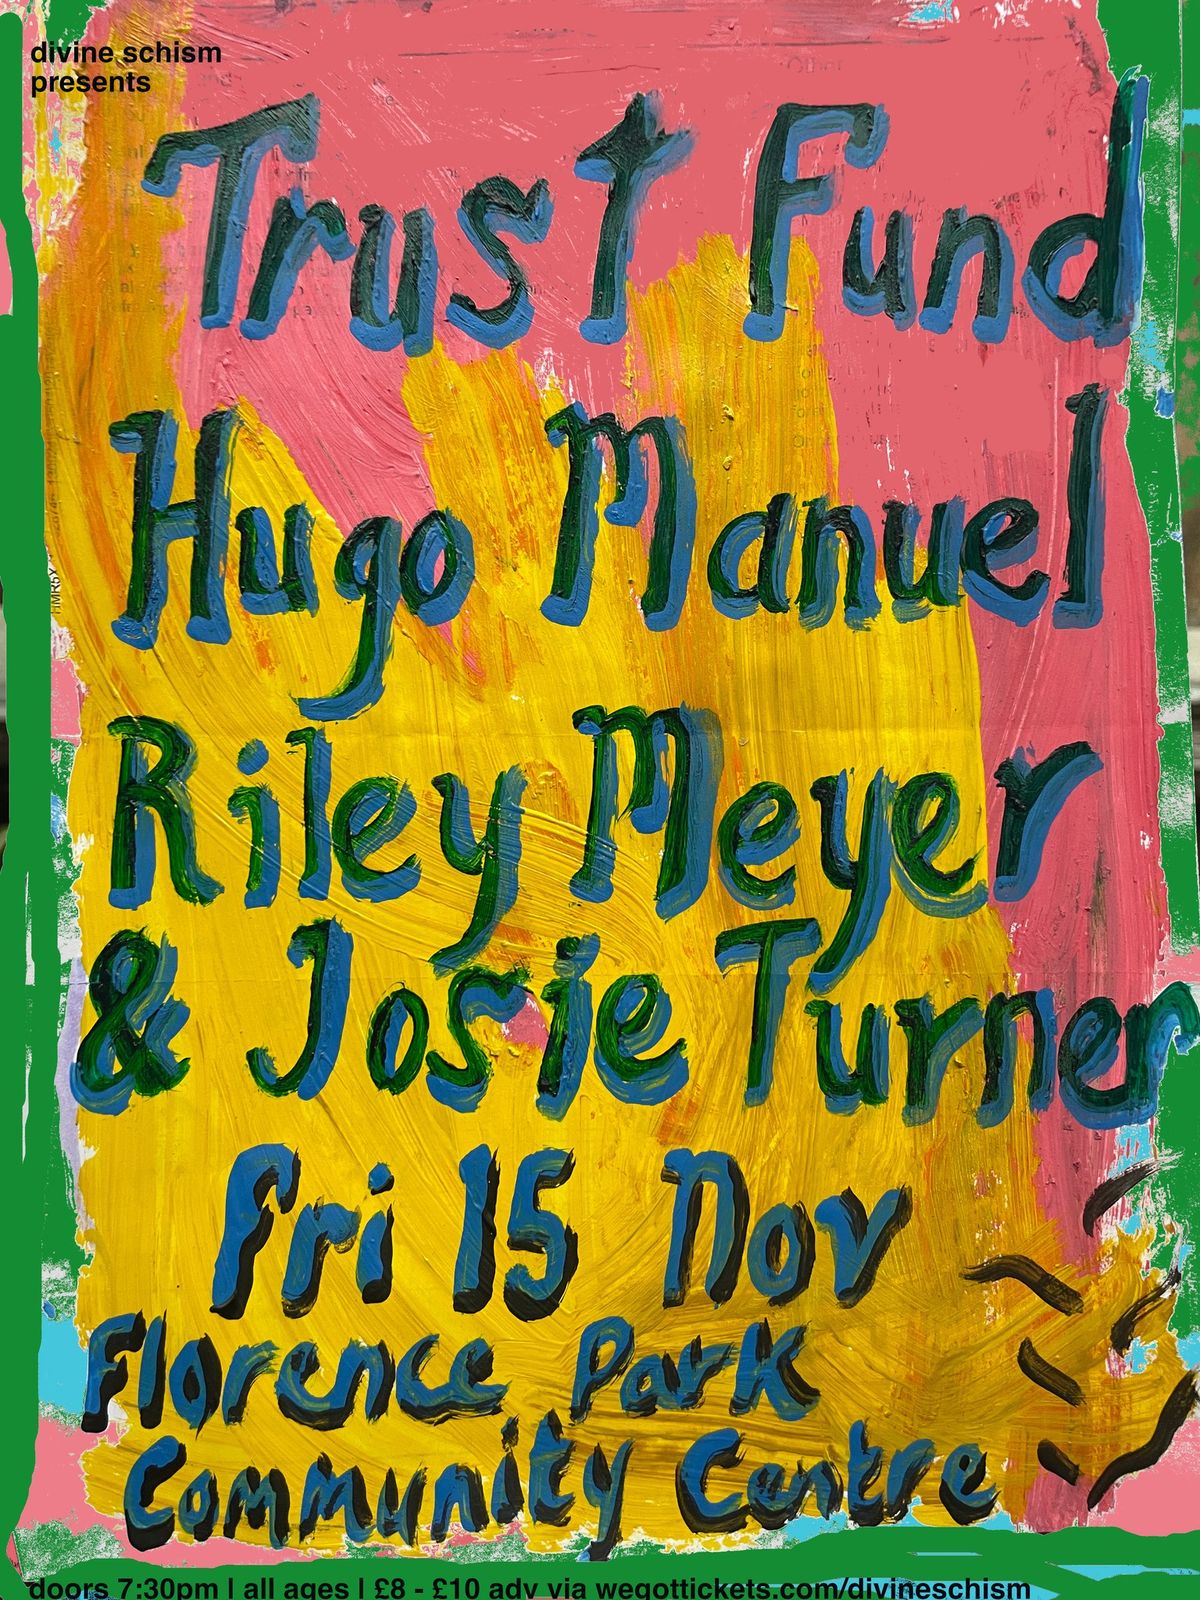 divine schism
presents
Trust Fund
Hugo Manuel
Riley Meyer
& Josie Turner
Fri 15 Nov
Florence Park
Community Centre
doors 7:30pm | all ages | £8 - £10 adv via wegottickets.com/divineschism